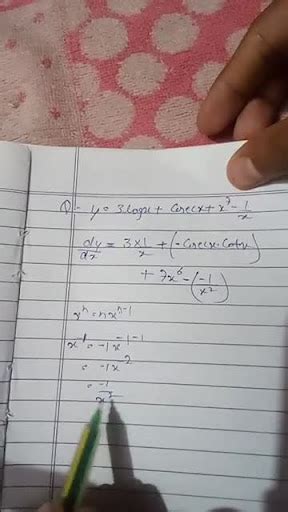 Q - y = 3 logx + cosecx + x⁷ - 1/x
dy/dx = 3 × 1/x + (-cosecx.cotx)
+ 7x⁶ - (-1/x²)
xⁿ = nxⁿ⁻¹
x⁻¹ = -1x⁻¹⁻¹
= -1x⁻²
= -1/x²